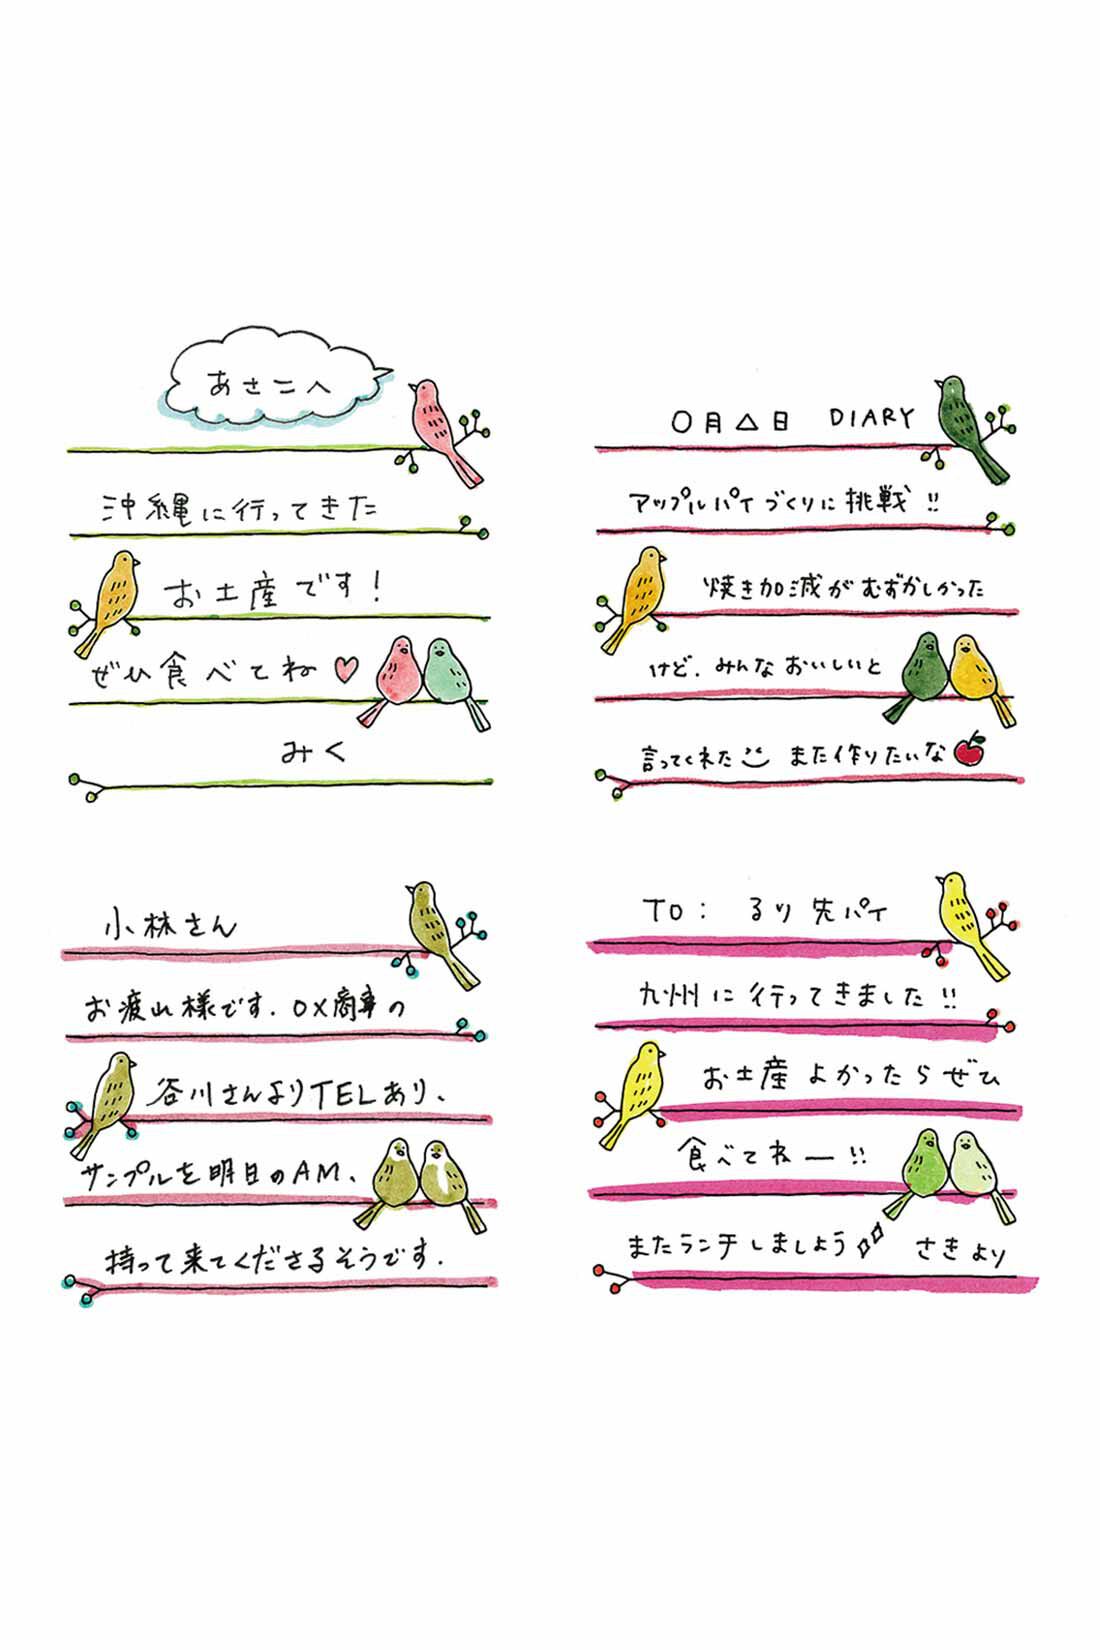 あさこへ
沖縄に行ってきた
お土産です!
ぜひ食べてね♡
みく
〇月△日 DIARY
アップルパイづくりに挑戦!!
焼き加減がむずかしかった
けど、みんなおいしいと
言ってくれた また作りたいな
小林さん
お疲れ様です。〇×商事の
谷川さんよりTELあり、
サンプルを明日のAM、
持って来てくださるそうです。
TO: るり先パイ
九州に行ってきました!!
お土産よかったらぜひ
食べてねー!!
またランチしましょう♪♪ さきより